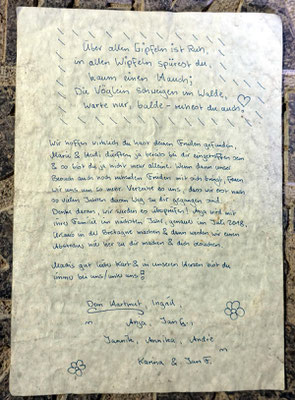 Über allen Gipfeln ist Ruh,
in allen Wipfeln spürest du,
kaum einen Hauch;
Die Vöglein schweigen im Walde,
warte nur, balde - ruhest du auch!
Wir hoffen wirklich du hast deinen Frieden gefunden,
Mario & Heidi dürften ja bereits bei dir eingetroffen sein
& so bist du ja nicht mehr alleine. Wenn dann unser
Besuch auch noch mehr Frieden mit sich bringt, freuen
wir uns um so mehr. Verzeihe es uns, dass wir erst nach
so vielen Jahren den Weg zu dir gegangen sind.
Danke deren, wir werden es
ihrer Familie im nächsten Jahr, genauer im Juli 2018,
Urlaub in der Bretagne machen & dann werden wir einen
Abstecher wie hier zu dir machen & dich besuchen.
Machs gut lieber Kurt & in unseren Herzen bist du
immer bei uns/unter uns!
Dein Hartmut, Ingrid
Anja, Jan G.,
Jannik, Annika, André
Karina & Jan F.